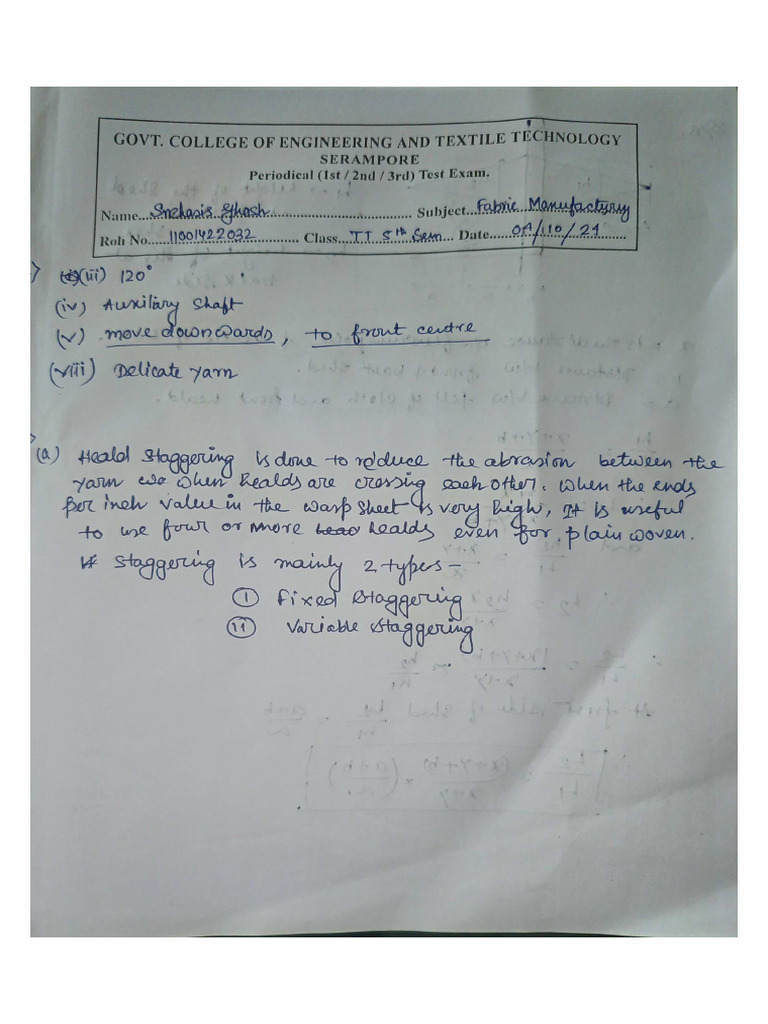 GOVT. COLLEGE OF ENGINEERING AND TEXTILE TECHNOLOGY
SERAMPORE
Periodical (1st / 2nd / 3rd) Test Exam.
Name....Snehasis Ghosh.... Subject....Fabric Manufacturing
Roll No....11001422032.... Class...TT 5th Sem... Date....04/10/24....
(iii) 120°
(iv) Auxilary Shaft
(v) move downwards, to front centre
(viii) Delicate yarn
(a) Heald staggering is done to reduce the abrasion between the
yarn when healds are crossing each other. When the ends
per inch value in the warp sheet is very high, It is useful
to use four or more healds even for plain woven.
* Staggering is mainly 2 types –
(I) Fixed Staggering
(II) Variable Staggering